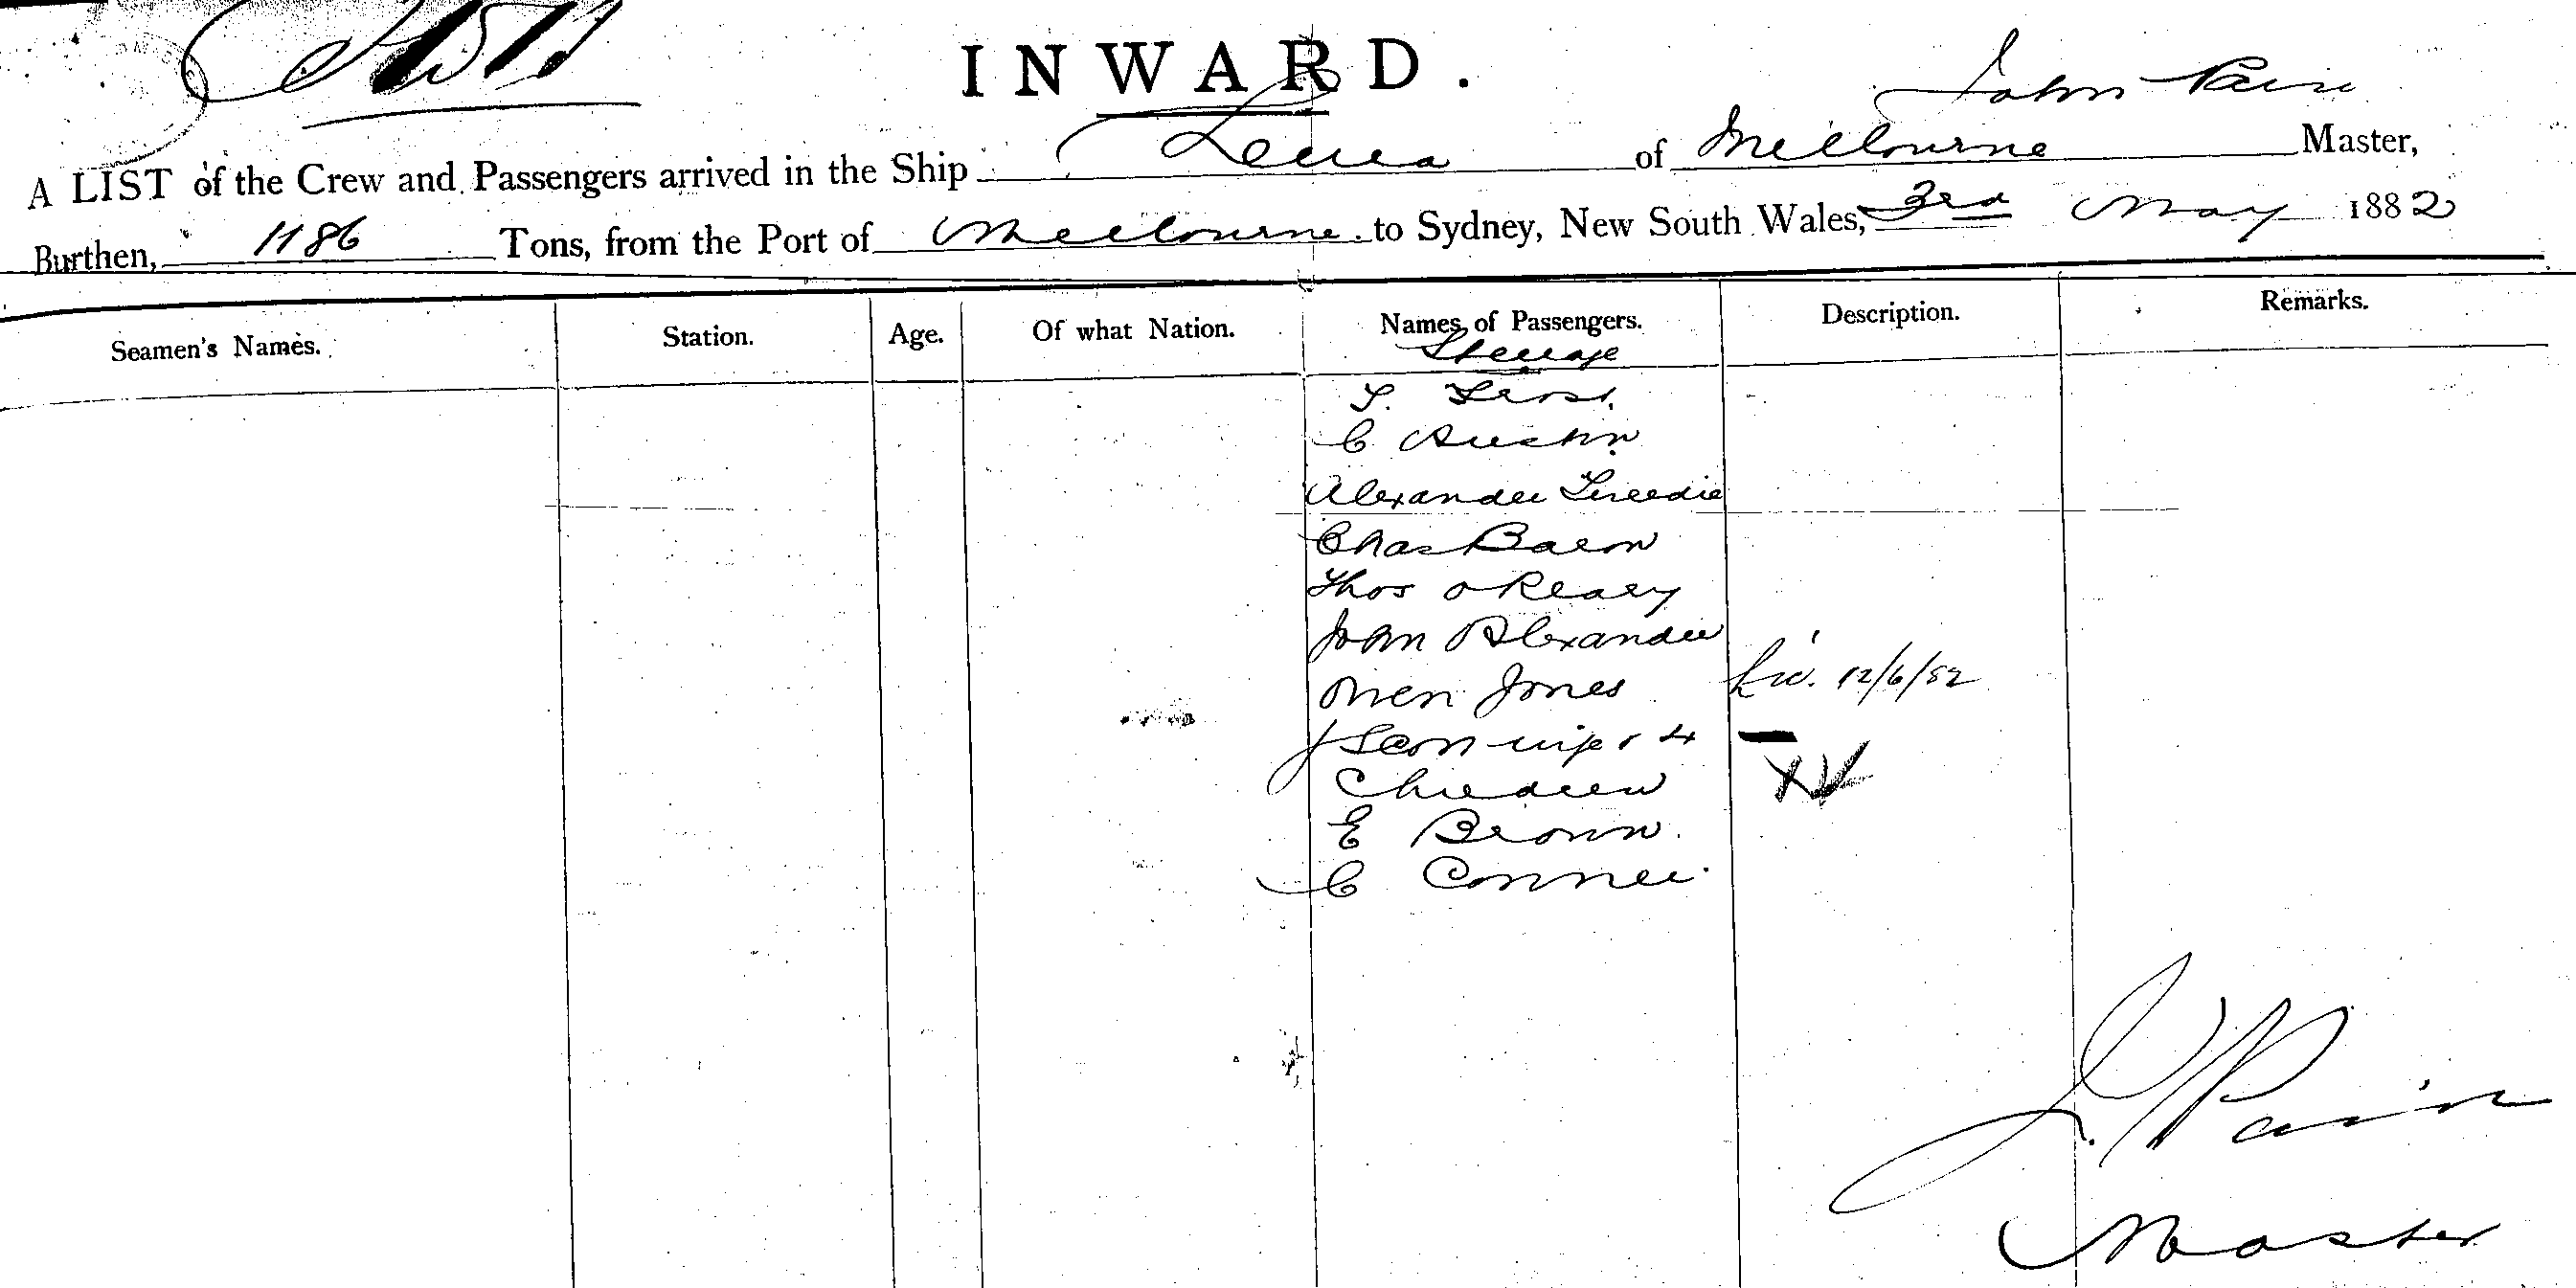 INWARD.
John Pain
A LIST of the Crew and Passengers arrived in the Ship of Melbourne Master,
Burthen, 1186 Tons, from the Port of Melbourne. to Sydney, New South Wales, 3rd May 1882
Seamen's Names. Station. Age. Of what Nation. Names of Passengers. Description. Remarks.
Steerage
C Austin
Alexander
Chas Baron
Thos
John Alexander
Owen Jones 12/6/82
J wife & 4
Children
E Brown.
C Conner.
J. Pain
Master